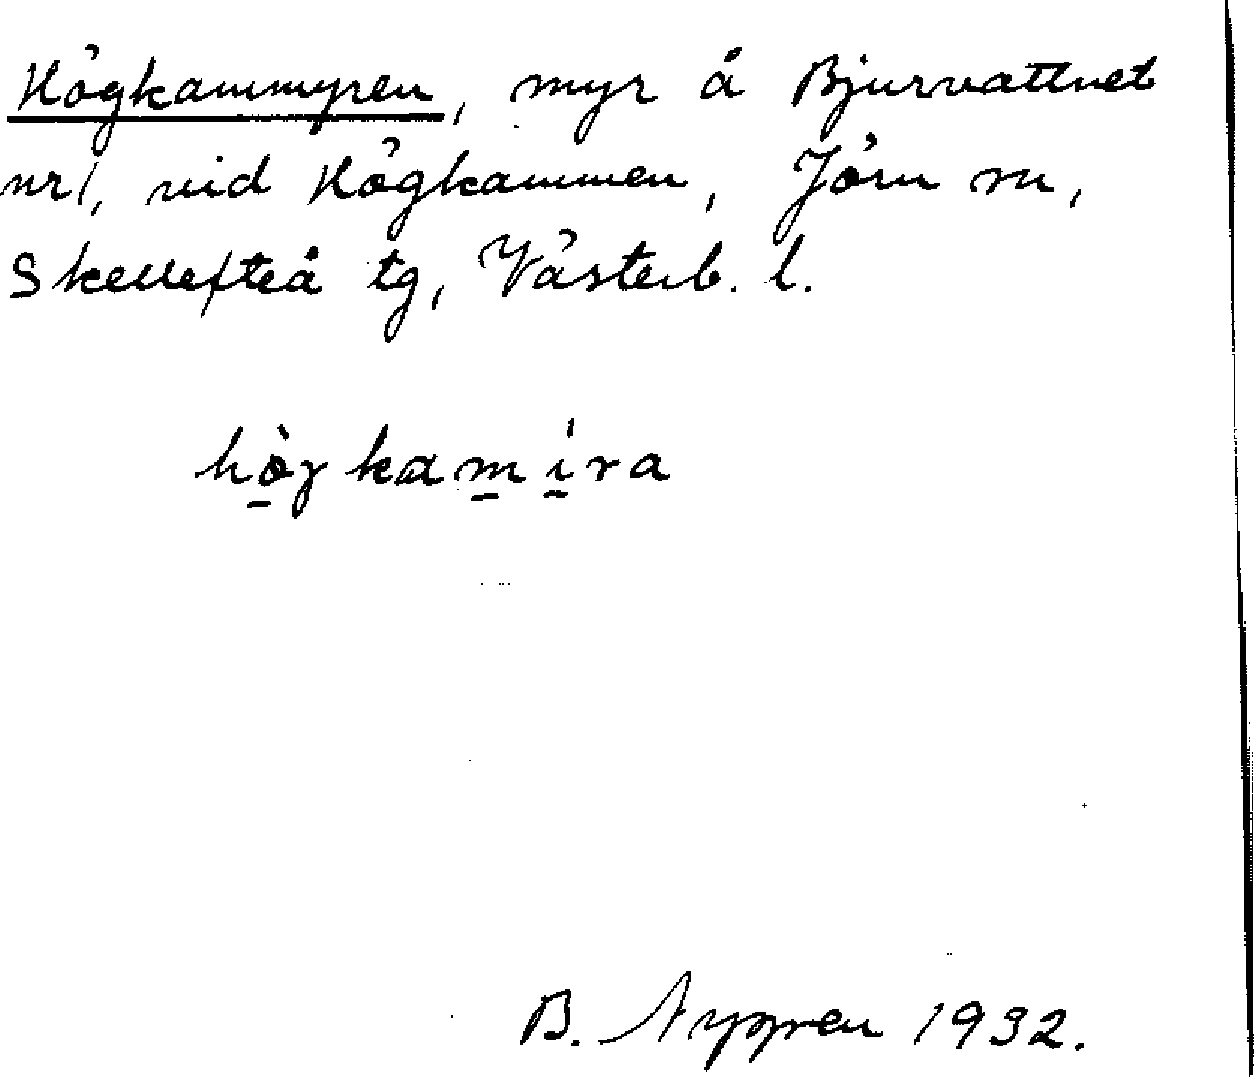 Högkammyren, myr å Bjurvattnet
nr 1, vid Högkammen, Jörn sn,
Skellefteå tg, Västerb. l.
hò̠gkam̠í̠ra
B. 1932.